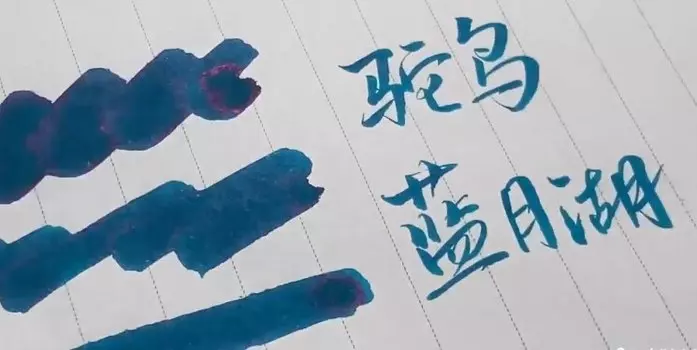 驼鸟
蓝月湖